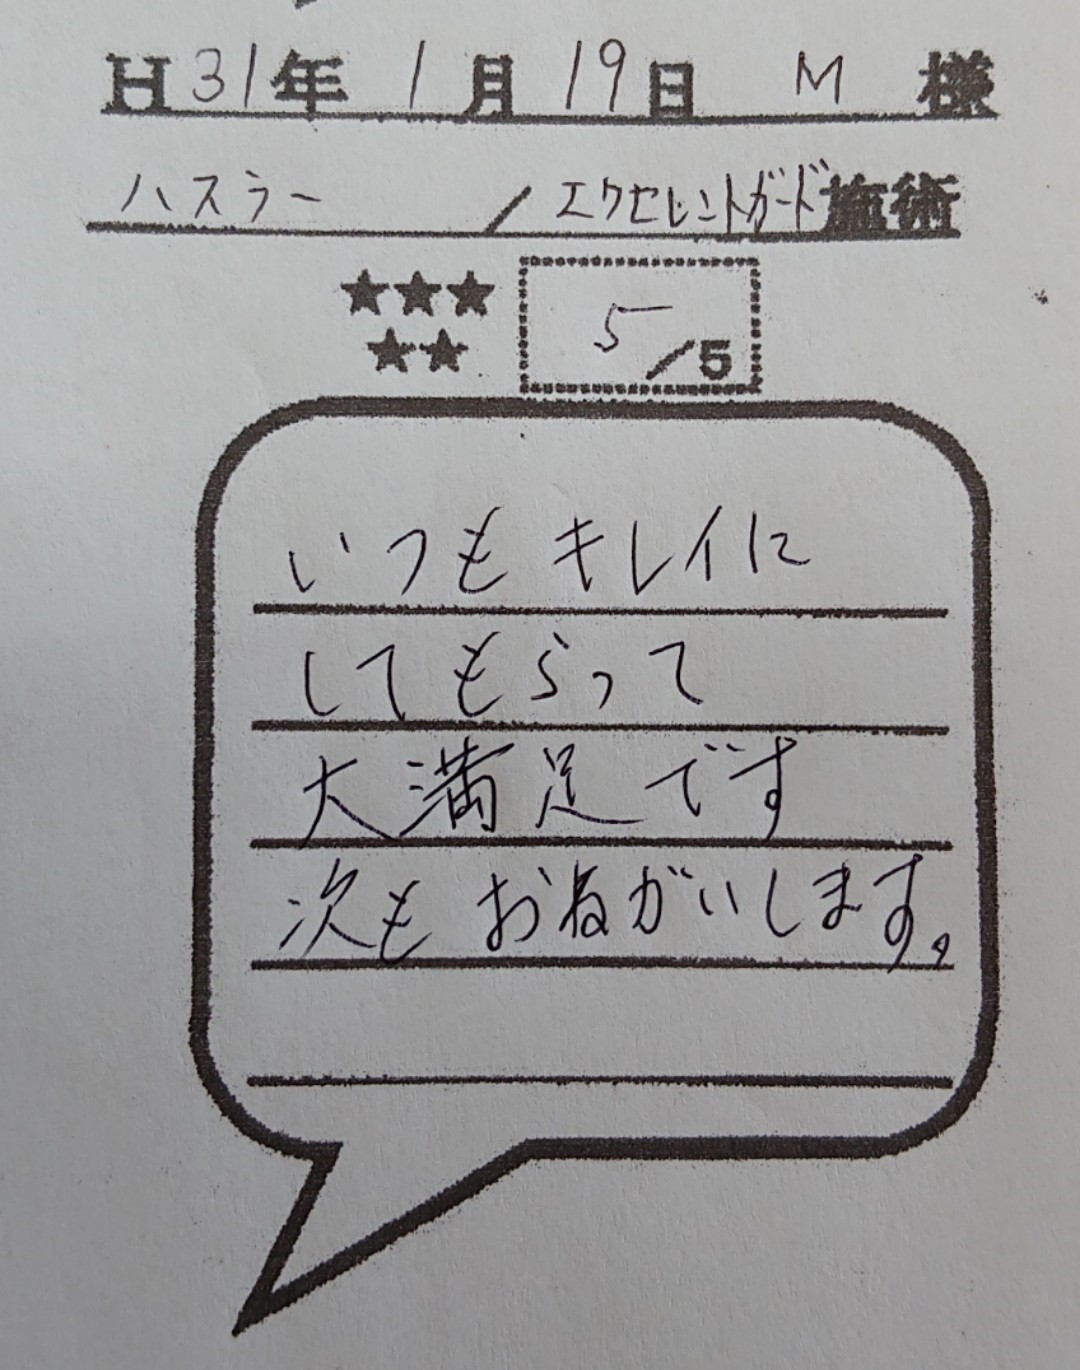 H31年 1月 19日 M 様
ハスラー / エクセレントガード施術
★★★ 5/5
★★
いつもキレイに
してもらって
大満足です
次もおねがいします。